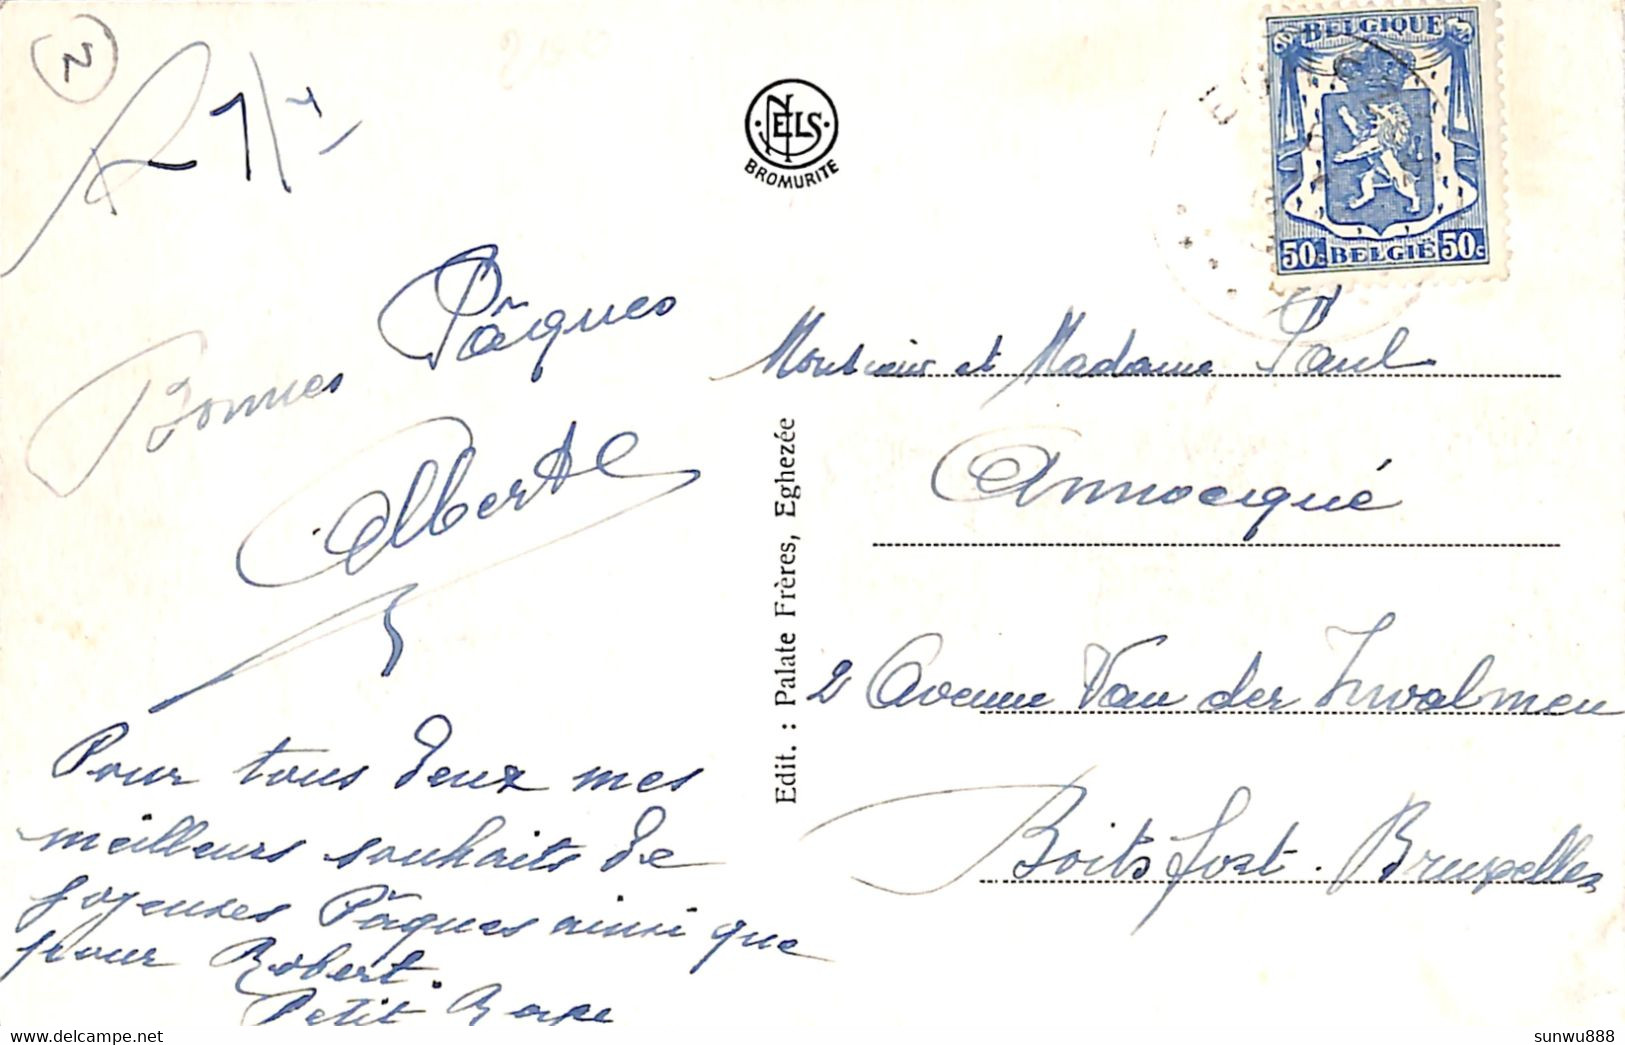 2
BELGIQUE
50c BELGIË 50c
NELS
BROMURITE
Bonnes Pâques
Alberte
Pour tous deux mes
meilleurs souhaits de
joyeuses Pâques ainsi que
pour Robert.
Petit
Edit. : Palate Frères, Eghezée
Monsieur et Madame Paul
Annocqué
2 Avenue Van der
Boitsfort. Bruxelles
sunwu888